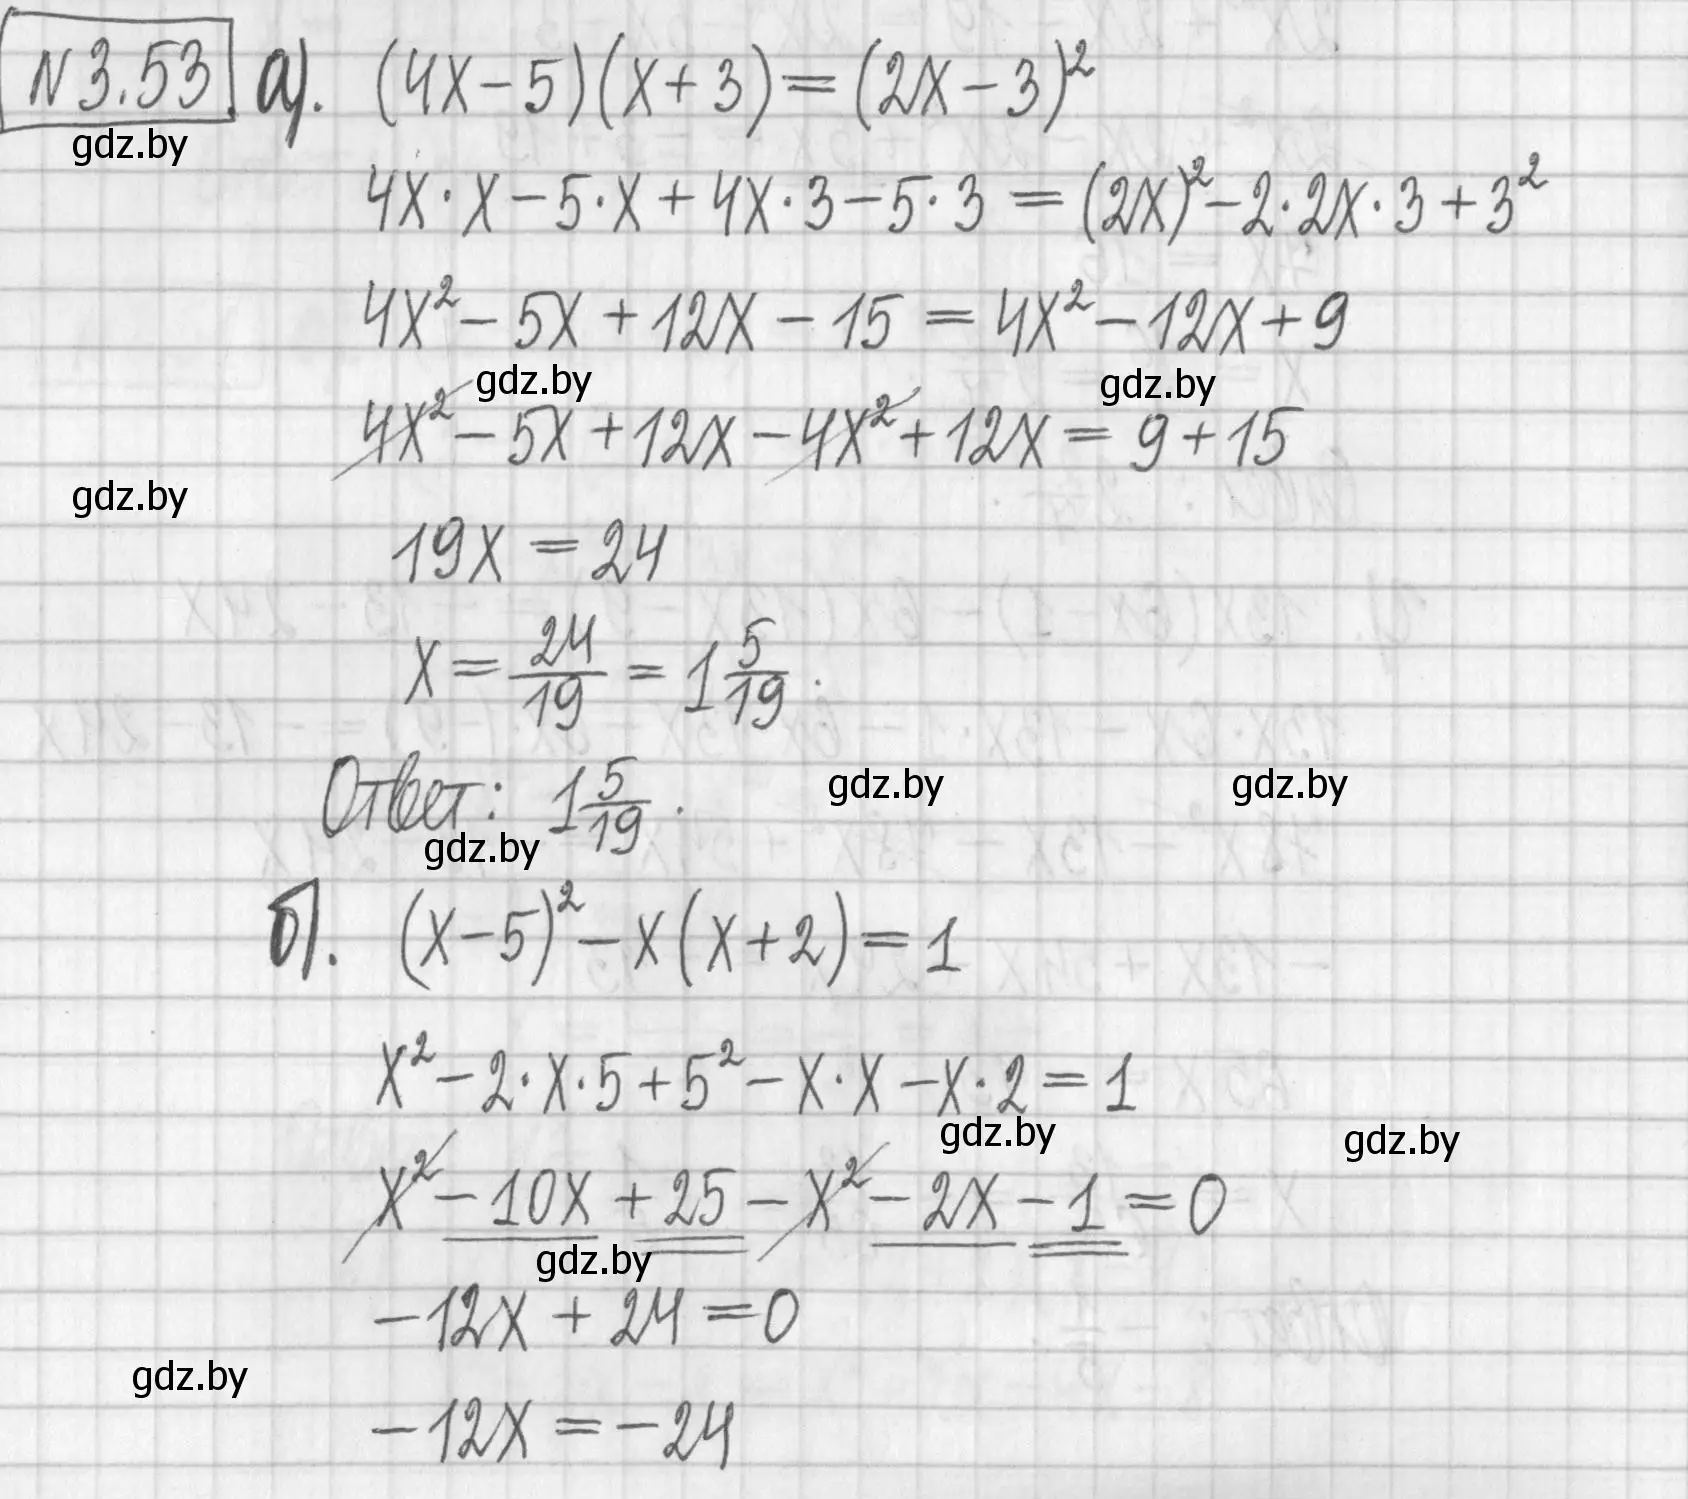 N 3.53. а). (4x-5)(x+3)=(2x-3)²
gdz.by
4x·x-5·x+4x·3-5·3=(2x)²-2·2x·3+3²
4x²-5x+12x-15=4x²-12x+9
gdz.by gdz.by
4x²-5x+12x-4x²+12x=9+15
gdz.by
19x=24
x=24/19=1 5/19.
Ответ: 1 5/19.
gdz.by gdz.by
gdz.by
б). (x-5)²-x(x+2)=1
x²-2·x·5+5²-x·x-x·2=1
gdz.by gdz.by
x²-10x+25-x²-2x-1=0
gdz.by
-12x+24=0
gdz.by
-12x=-24